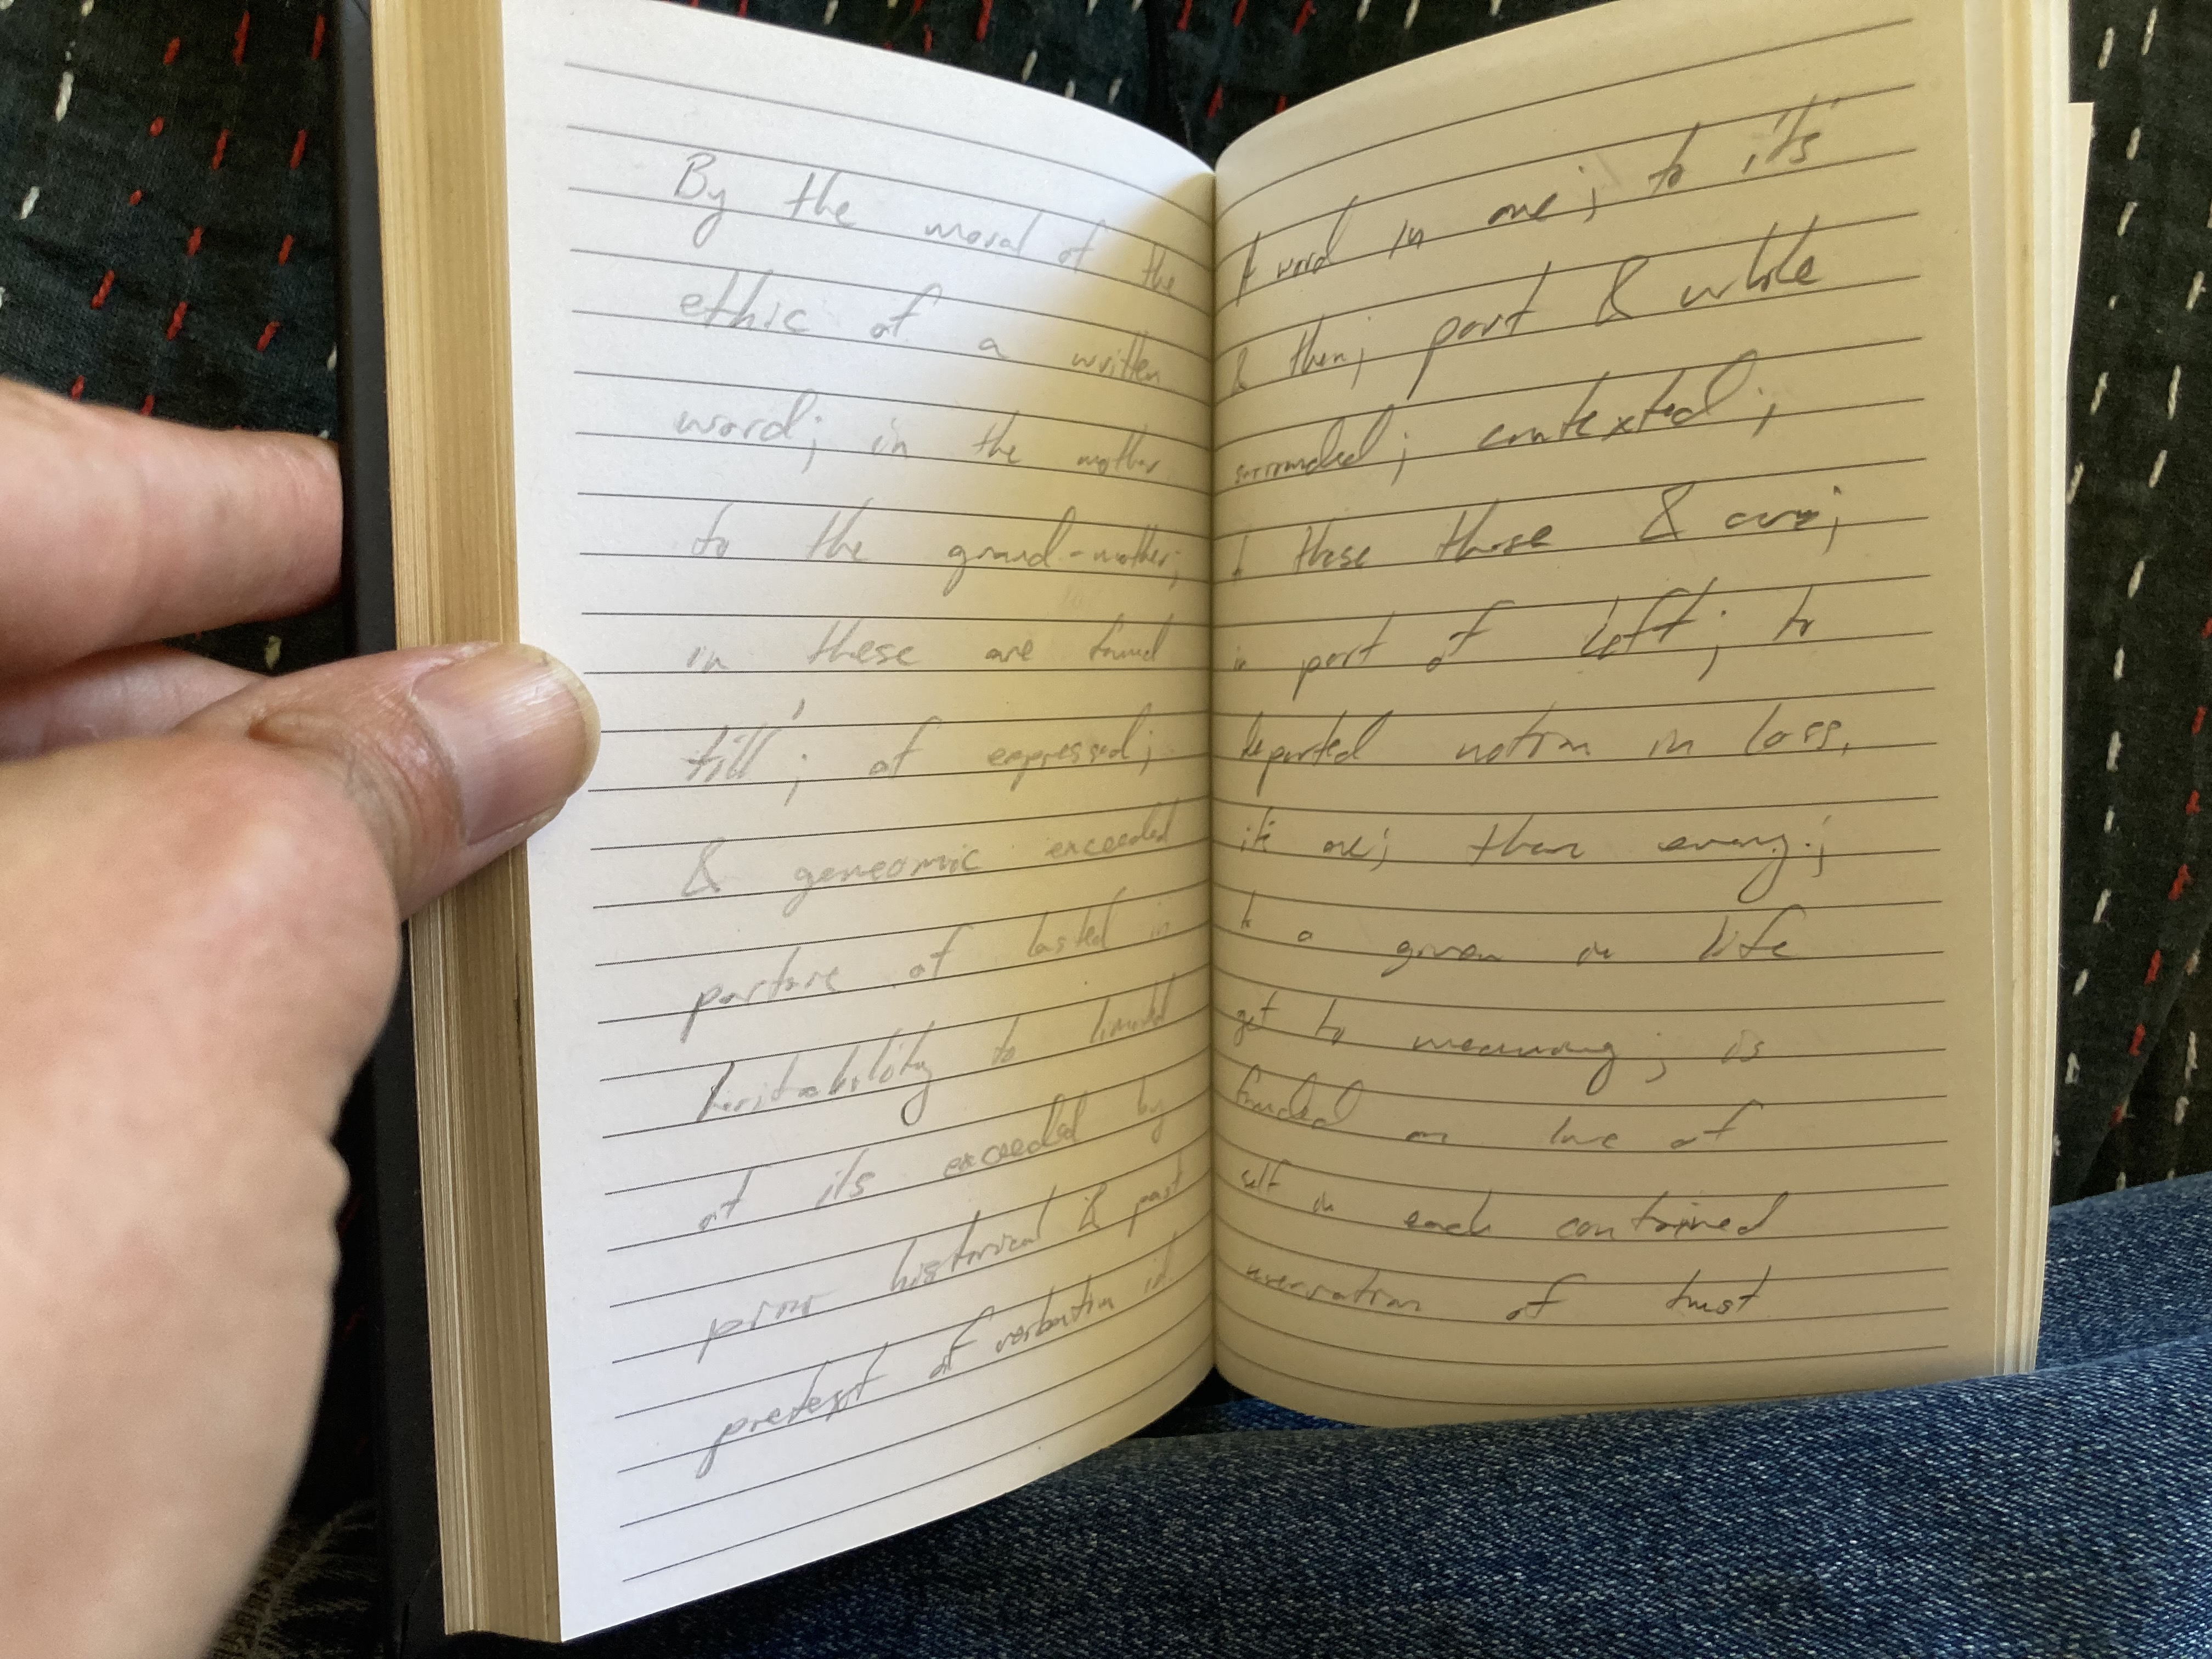 By the moral of the
ethic of a written
word; in the mother
to the grand-mother;
in these are found
'till'; of expressed;
& geneomic exceeded
parture of lasted in
heritability to limited
of its exceeded by
prior historical & past
pretext of verbatim id
A word in one'; to 'it's'
& then; part & whole
surrounded; contexted;
these those &
in part of left'; to
departed notion in loss,
it's one'; than every;
to a given in life
get to meaning; is
founded on love of
self in each contained
of trust